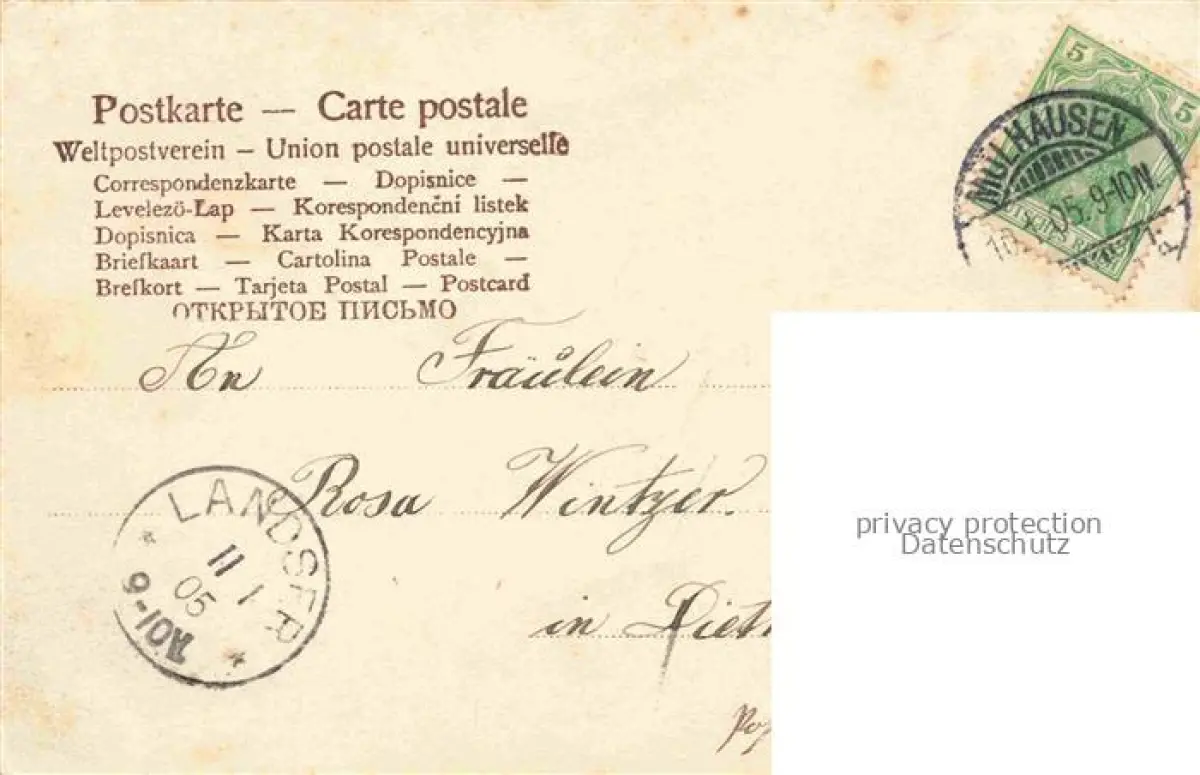 Postkarte — Carte postale
Weltpostverein – Union postale universelle
Correspondenzkarte — Dopisnice —
Levelezö-Lap — Korespondenční listek
Dopisnica — Karta Korespondencyjna
Briefkaart — Cartolina Postale —
Brefkort — Tarjeta Postal — Postcard
ОТКРЫТОЕ ПИСЬМО
5 5
MÜLHAUSEN
10. 05. 9-10N.
An Fräulein
Rosa Wintzer.
in Diet
LANDSER
11 1
05
9-10V
privacy protection
Datenschutz